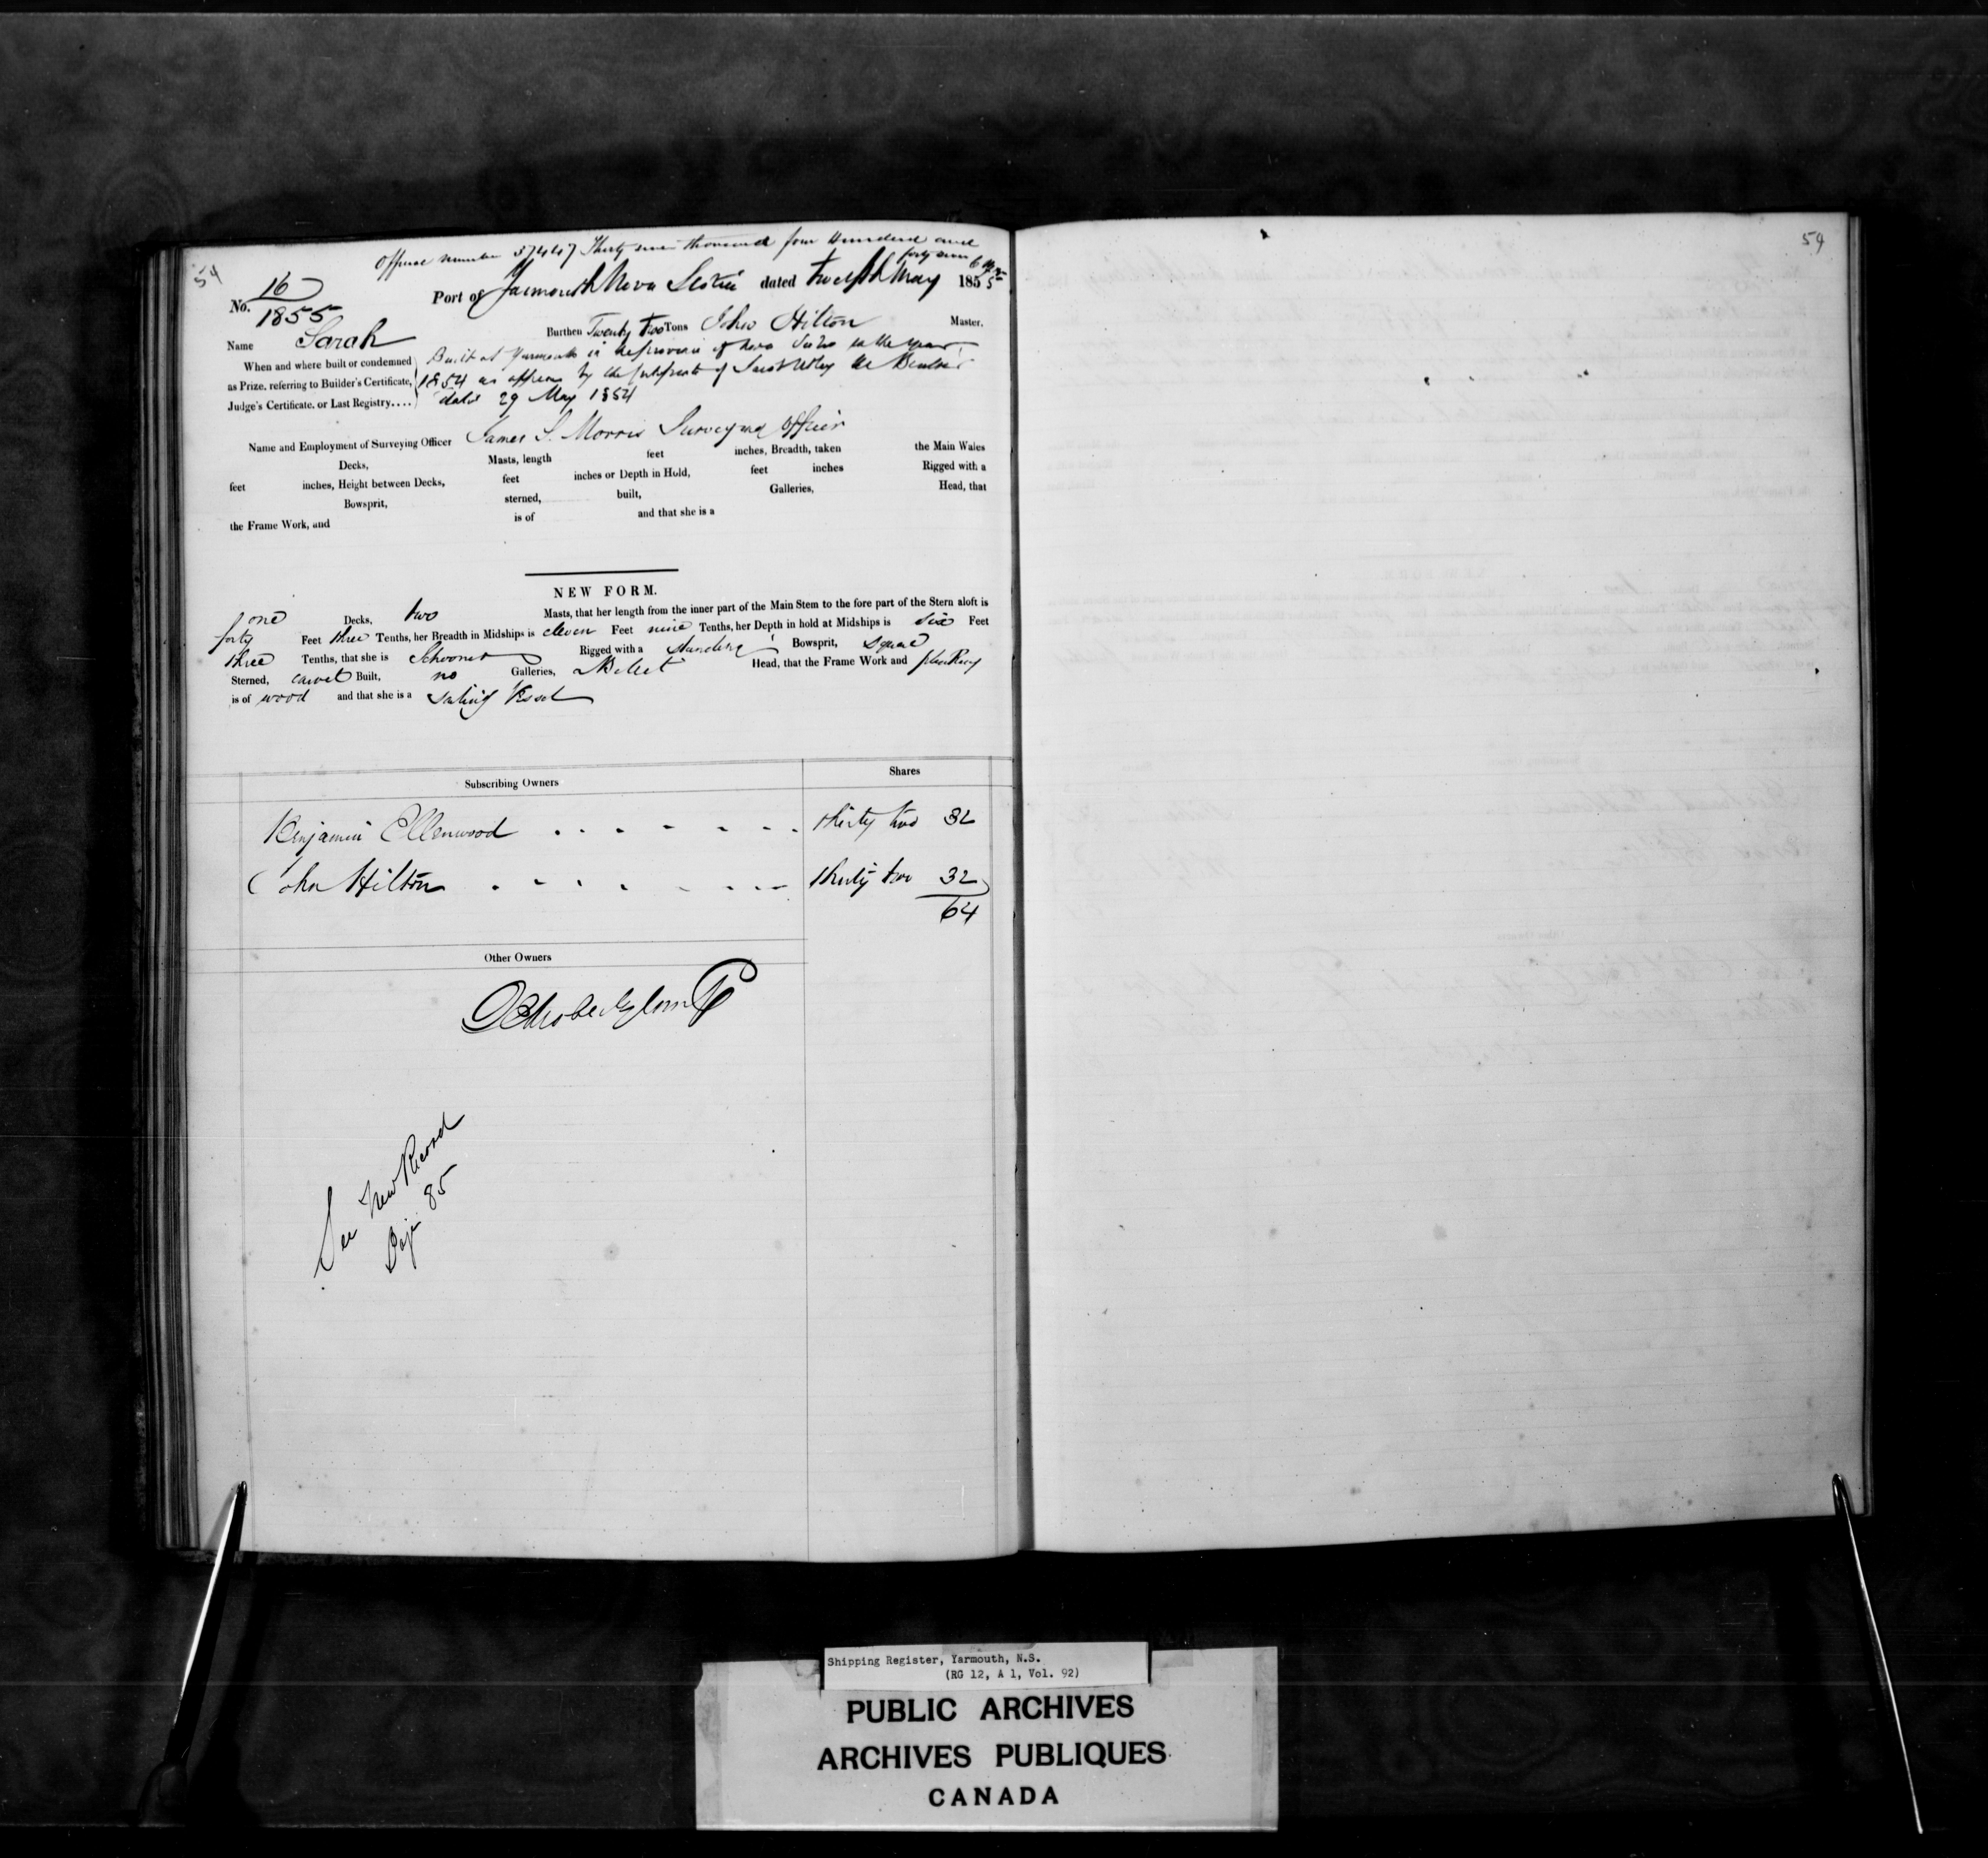 54
Official number 37447 Thirty seven thousand four Hundred and
forty seven
No. 16
1855
Port of Yarmouth Nova Scotia dated twelfth May 1855
Name Sarah Burthen Twenty two Tons John Hilton Master.
When and where built or condemned
as Prize, referring to Builder's Certificate,
Judge's Certificate, or Last Registry....
Built at Yarmouth in the province of Nova Scotia in the year
1854 as appears by the Certificate of Jacob the Builder
dated 29 May 1854
Name and Employment of Surveying Officer James S. Morris Surveying Officer
Decks, Masts, length feet inches, Breadth, taken the Main Wales
feet inches, Height between Decks, feet inches or Depth in Hold, feet inches Rigged with a
Bowsprit, sterned, built, Galleries, Head, that
the Frame Work, and is of and that she is a
NEW FORM.
one Decks, two Masts, that her length from the inner part of the Main Stem to the fore part of the Stern aloft is
forty Feet three Tenths, her Breadth in Midships is eleven Feet nine Tenths, her Depth in hold at Midships is six Feet
three Tenths, that she is Schooner Rigged with a standing Bowsprit, square
Sterned, carvel Built, no Galleries, Billet Head, that the Frame Work and planking
is of wood and that she is a sailing Vessel
Subscribing Owners Shares
Benjamin Ellenwood thirty two 32
John Hilton thirty two 32
64
Other Owners
See New Record
Page 85
59
Shipping Register, Yarmouth, N.S.
(RG 12, A 1, Vol. 92)
PUBLIC ARCHIVES
ARCHIVES PUBLIQUES
CANADA